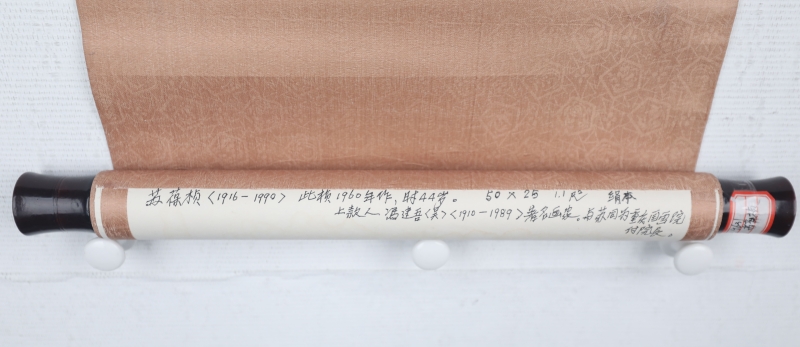 苏葆桢〈1916-1990〉 此桢1960年作，时44岁。 50×25 1.1尺² 绢本
上款人 冯建吾〈其〉〈1910-1989〉著名画家。与苏同为重庆国画院
付院长。